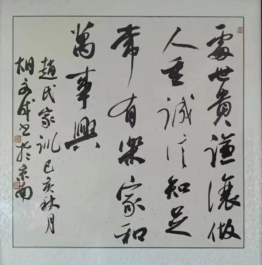 處世貴謙讓做
人重誠信知足
常有樂家和
萬事興
趙氏家訓己亥秋月
胡文成書於京南